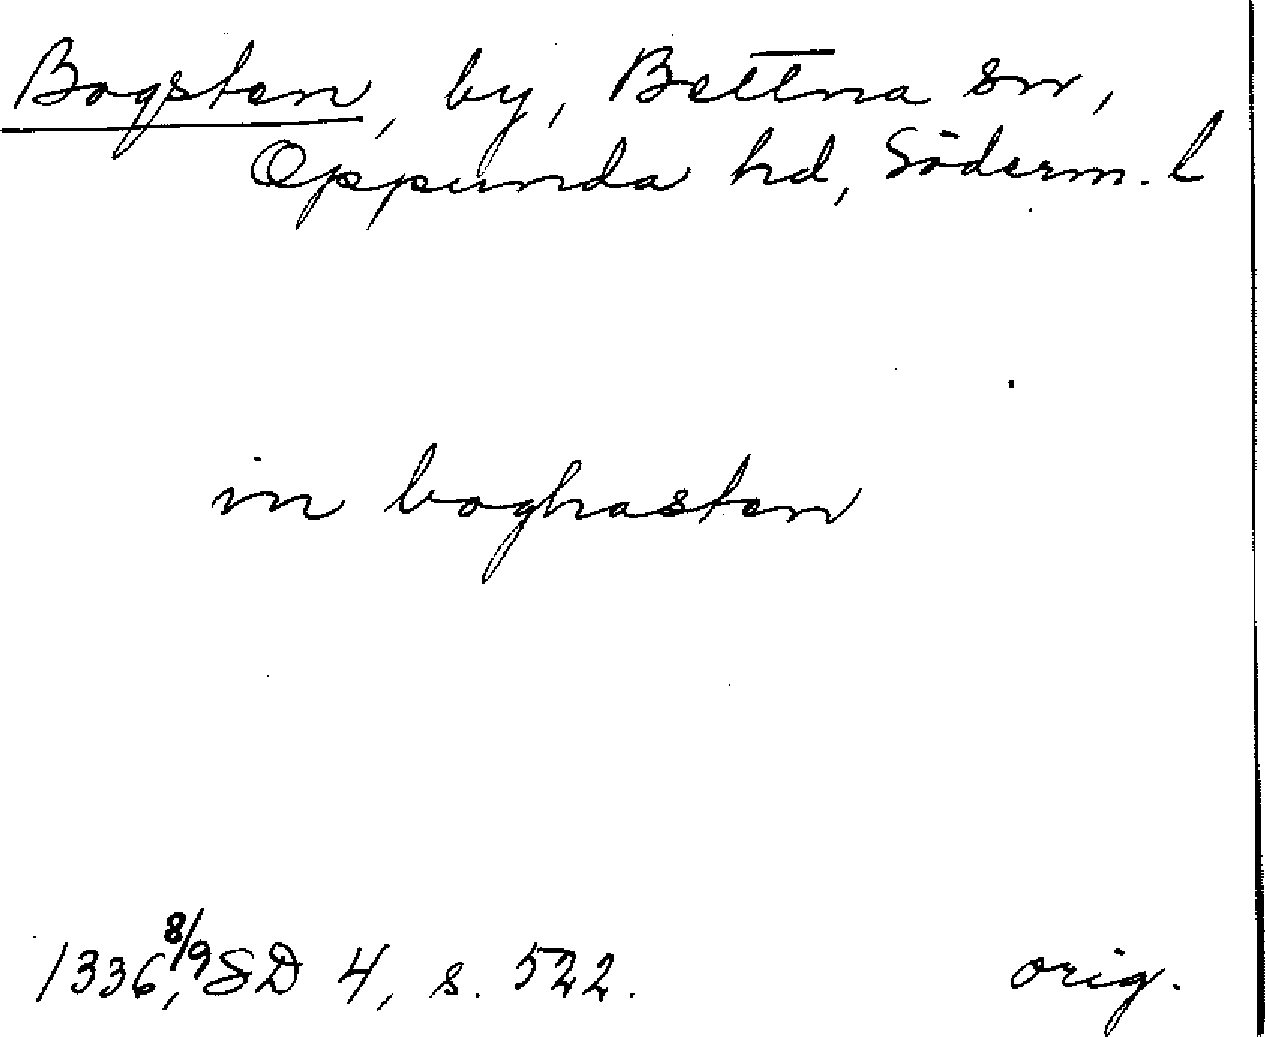 Bogsten, by, Bettna sn,
Oppunda hd, Söderm. l
in boghasten
1336, 8/9 SD 4, s. 522. orig.